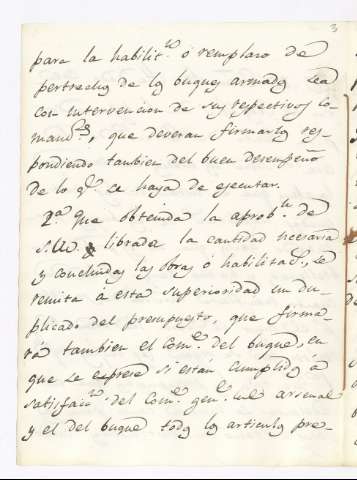 3
para la habilit.on ó remplazo de
pertrechos de los buques armados sea
con intervencion de sus respectivos Co-
mand.es, que deveran firmarlos res-
pondiendo tambien del buen desempeño
de lo q.e se haya de ejecutar.
2.a que obtenida la aprob.n de
S.M. y librada la cantidad necesaria
y concluidas las obras ó habilitac.s, se
remita á esta superioridad un du-
plicado del presupuesto, que firma-
rá tambien el Com.te del buque, en
que se exprese si estan cumplidos á
satisfac.on del Com.te gen.l del arsenal
y el del buque todos los articulos pre-